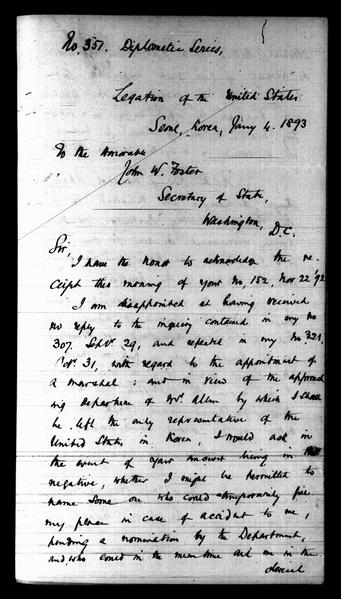 No. 351. Diplomatic Series,
Legation of the United States
Seoul, Korea, Jany 4. 1893
To the Honorable
John W. Foster
Secretary of State,
Washington, D.C.
Sir,
I have the honor to acknowledge the re-
ceipt this morning of your No. 152, Nov 22 '92
I am disappointed at having received
no reply to the inquiry contained in my no
307. Sept. 29, and repeated in my no. 321.
31, with regard to the appointment of
a marshal; and in view of the approach
ing departure of Dr. Allen by which I shall
be left the only representative of the
United States in Korea, I would ask in
the event of your answer being in the
negative, whether I might be permitted to
name some one who could temporarily fill
my place in case of accident to me,
pending a nomination by the Department,
and who could in the mean time aid me in the